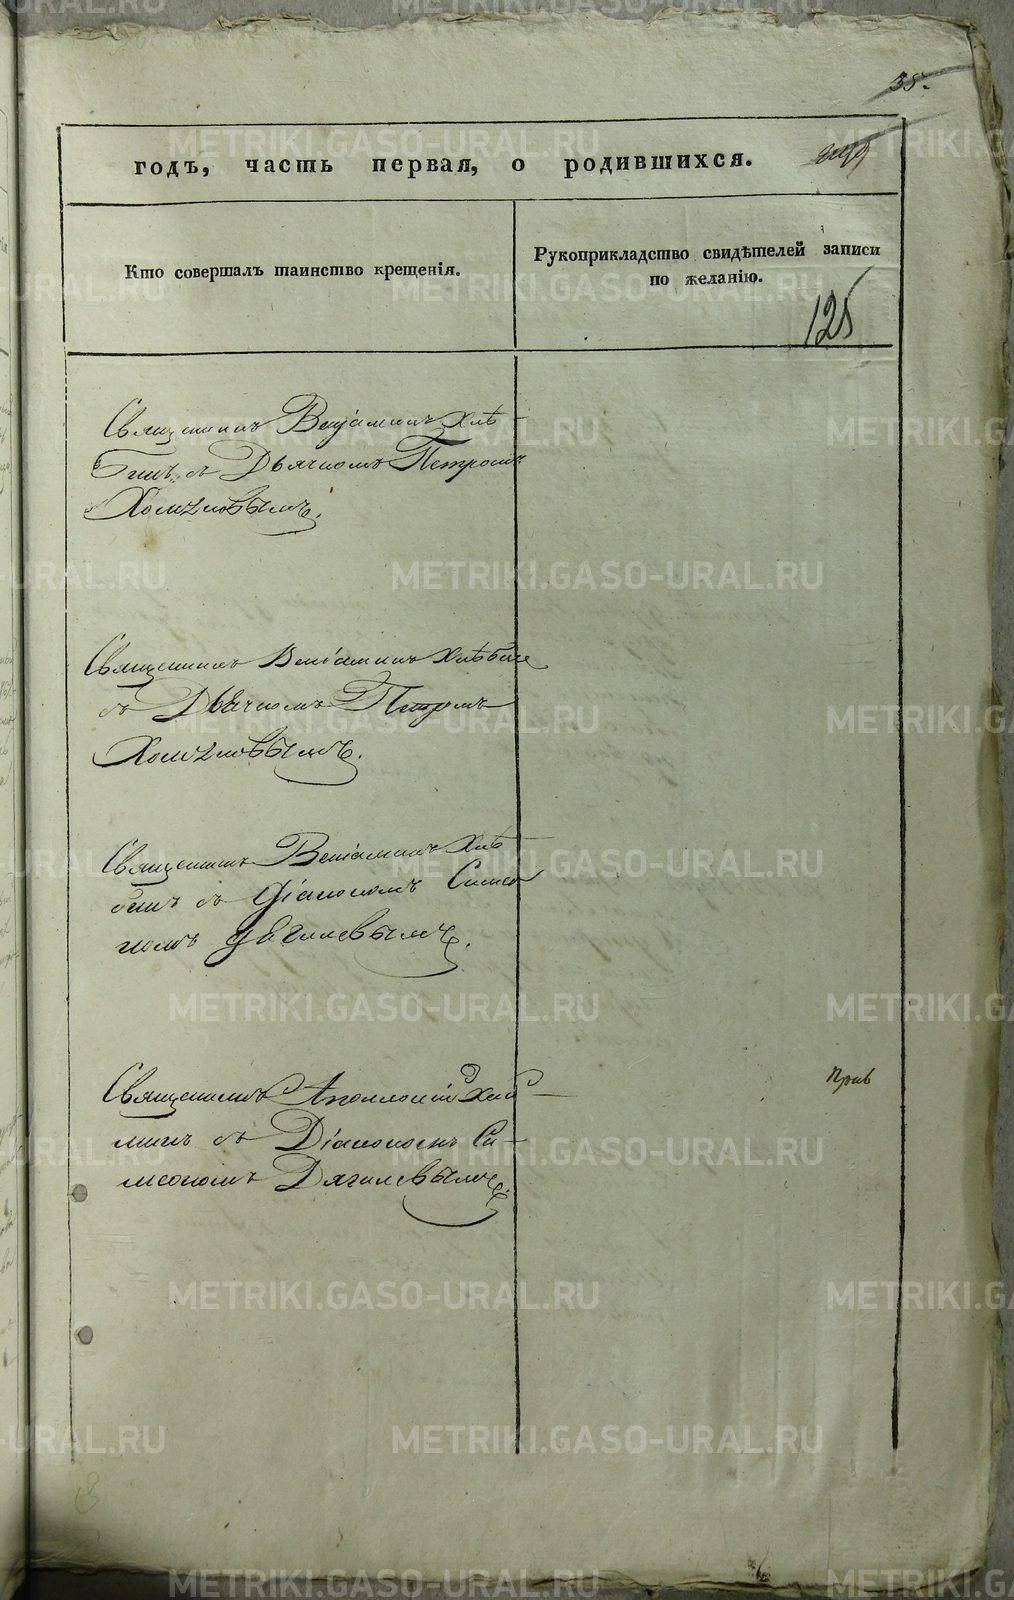 35.
годъ, часть первая, о родившихся.
Кто совершалъ таинство крещенія.
Рукоприкладство свидѣтелей записи
по желанію.
125
Священникъ Веніаминъ Хлѣ
бинъ съ Дьячкомъ Петромъ
Холмовымъ.
Священникъ Веніаминъ Хлѣбин
съ Дьячкомъ Петромъ
Священникъ Веніаминъ Хлѣ
бинъ съ Діакономъ Симео
номъ Дягилевымъ.
Священникъ Аполлоній
съ Діакономъ Си-
меономъ Дягилевымъ.
METRIKI.GASO-URAL.RU